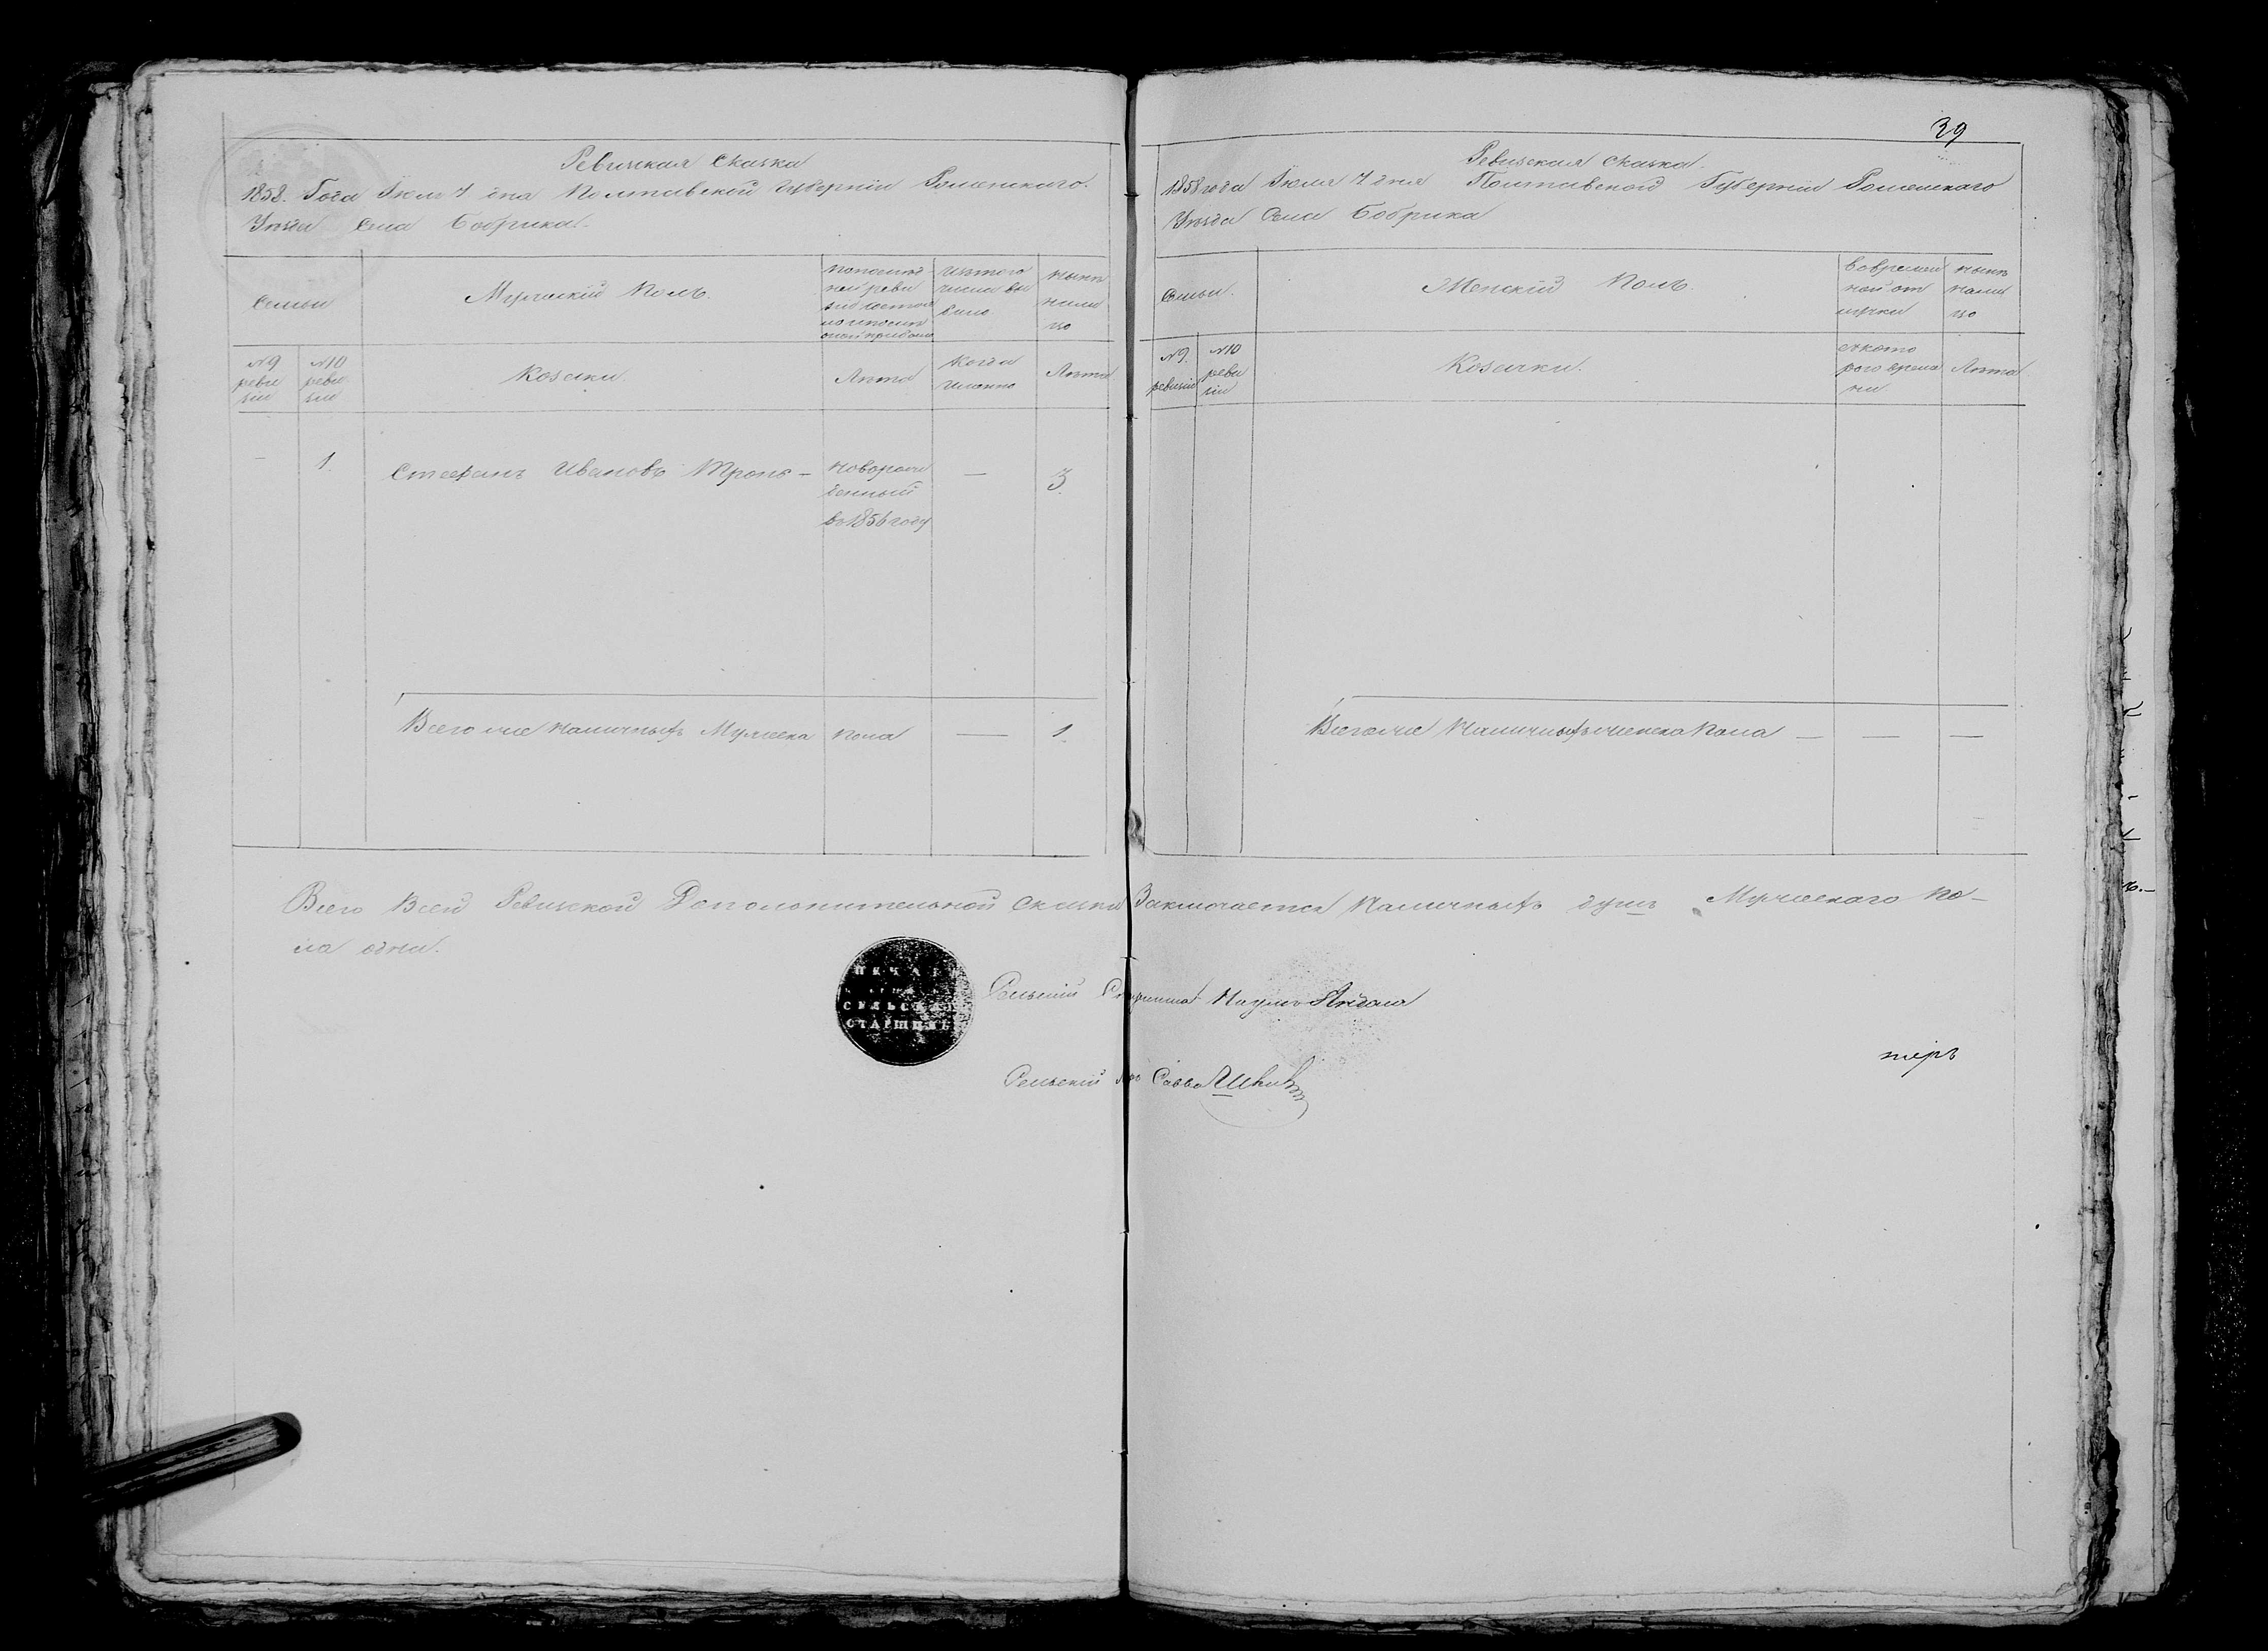 Ревизкая Сказка
1858. Года Іюля 7 дня Полтавской Губерніи Роменского.
Уезда Села Бобрика.
Семьи
Мужеский Полъ.
ныне
нали
цо
№ 9
реви
зии
№ 10
реви
зии
Козаки
Лета
Когда
именно
Лета
— 1. Стефанъ Ивановъ Тронь —
новорож
денный
въ 1856 году
— 3
Всего же наличныхъ Мужеска пола — 1.
39
Ревизская Сказка.
1858 года Іюля 7 дня Полтавской Губерніи Роменского
Уезда Села Бобрика
Семьи.
Женский Полъ.
во времен
ной от
лучки
ныне
нали
цо
№ 9.
ревизіи
№ 10
реви
зіи
Козачки.
с кото
рого време
ни
Лета
Всего же Наличныхъ женска Пола — — —
Всего Всей Ревизской Дополнительной Сказки Заключается Наличныхъ душъ Мужеского по-
ла одна.
ПЕЧАТЬ
СЕЛЬС
СТАРШИНЫ
Сельский Старшина Наумъ
Сельский Савва